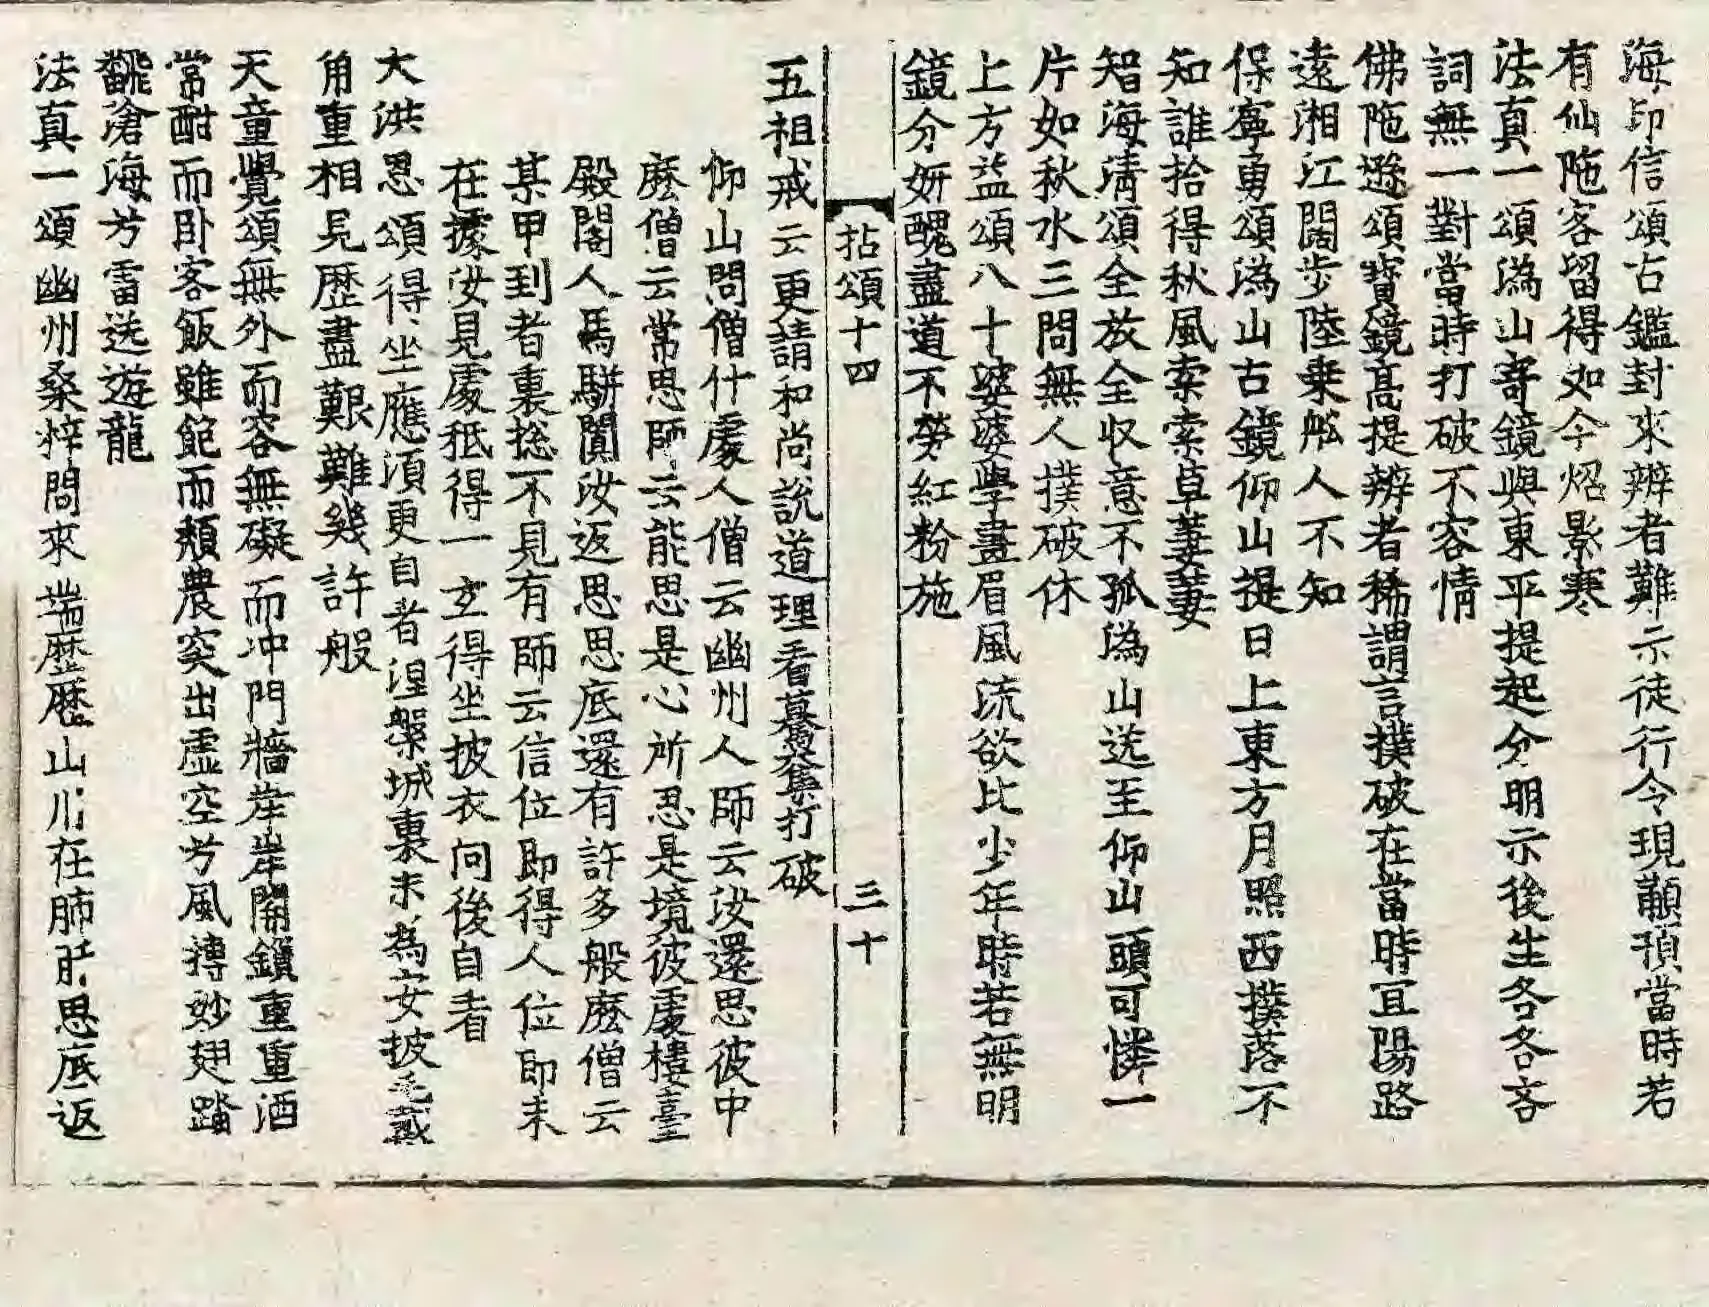 海印信頌古鑑封來辨者難示徒行令現顢頇當時若
有仙陁客留得如今炤影寒
法真一頌潙山寄鏡與東平提起分明示後生各各吝
詞無一對當時打破不容情
佛陁遜頌寶鏡髙提辨者稀謂言撲破在當時冝陽路
遠湘江闊步陸乗舩人不知
保寧勇頌潙山古鏡仰山提日上東方月照西撲落不
知誰拾得秋風索索草萋萋
智海淸頌全放全収意不孤潙山送至仰山頭可憐一
片如秋水三問無人撲破休
上方益頌八十婆婆學畫眉風流欲比少年時若無明
鏡分妍醜盡道不勞紅粉施
拈頌十四 三十
五祖戒云更請和尚說道理看驀奪打破
仰山問僧什處人僧云幽州人師云汝還思彼中
麽僧云常思師云能思是心所思是境彼處樓臺
殿閣人馬騈闐汝返思思底還有許多般麽僧云
某甲到者裏揔不見有師云信位即得人位即未
在據汝見處秪得一玄得坐披衣向後自看
大洪恩頌得坐應湏更自看涅槃城裏未為安披毛戴
角重相見歷盡艱難幾許般
天童覺頌無外而容無礙而冲門牆岸岸關鎖重重酒
常酣而卧客飯雖飽而頽農突出虛空兮風摶妙翅踏
飜滄海兮雷送遊龍
法真一頌幽州桑梓問來端歷歷山川在肺肝思底返